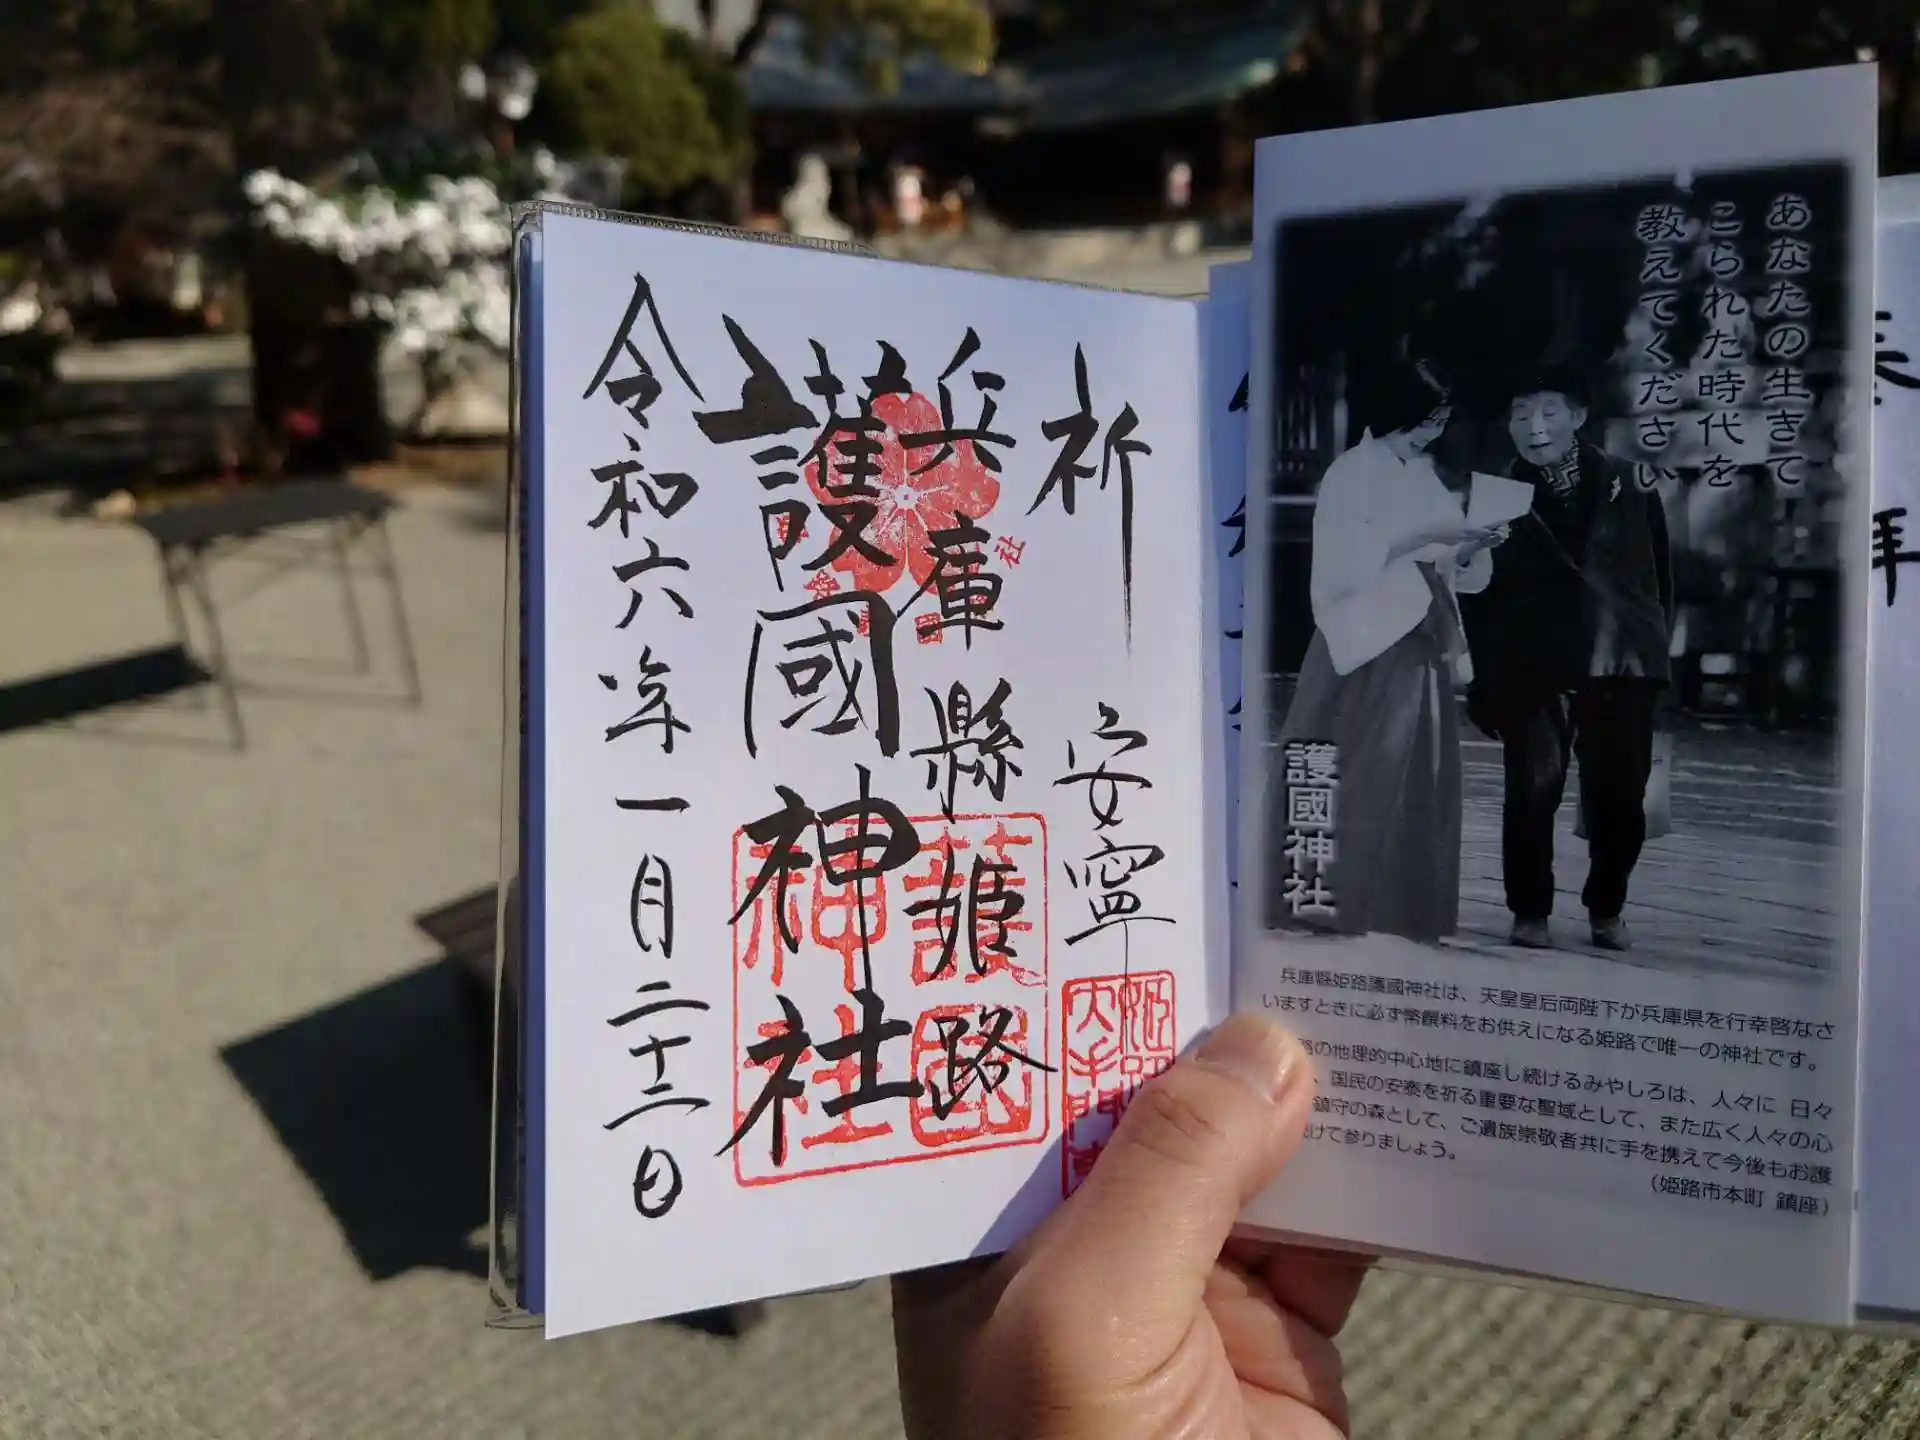 祈 安寧
兵庫縣姫路
護國神社
令和六年一月二十二日
護國
神社
あなたの生きて
こられた時代を
教えてください
護國神社
兵庫縣姫路護國神社は、天皇皇后両陛下が兵庫県を行幸啓なさ
いますときに必ず幣饌料をお供えになる姫路で唯一の神社です。
路の地理的中心地に鎮座し続けるみやしろは、人々に 日々
、国民の安泰を祈る重要な聖域として、また広く人々の心
鎮守の森として、ご遺族崇敬者共に手を携えて今後もお護
けて参りましょう。
(姫路市本町 鎮座)
奉拝